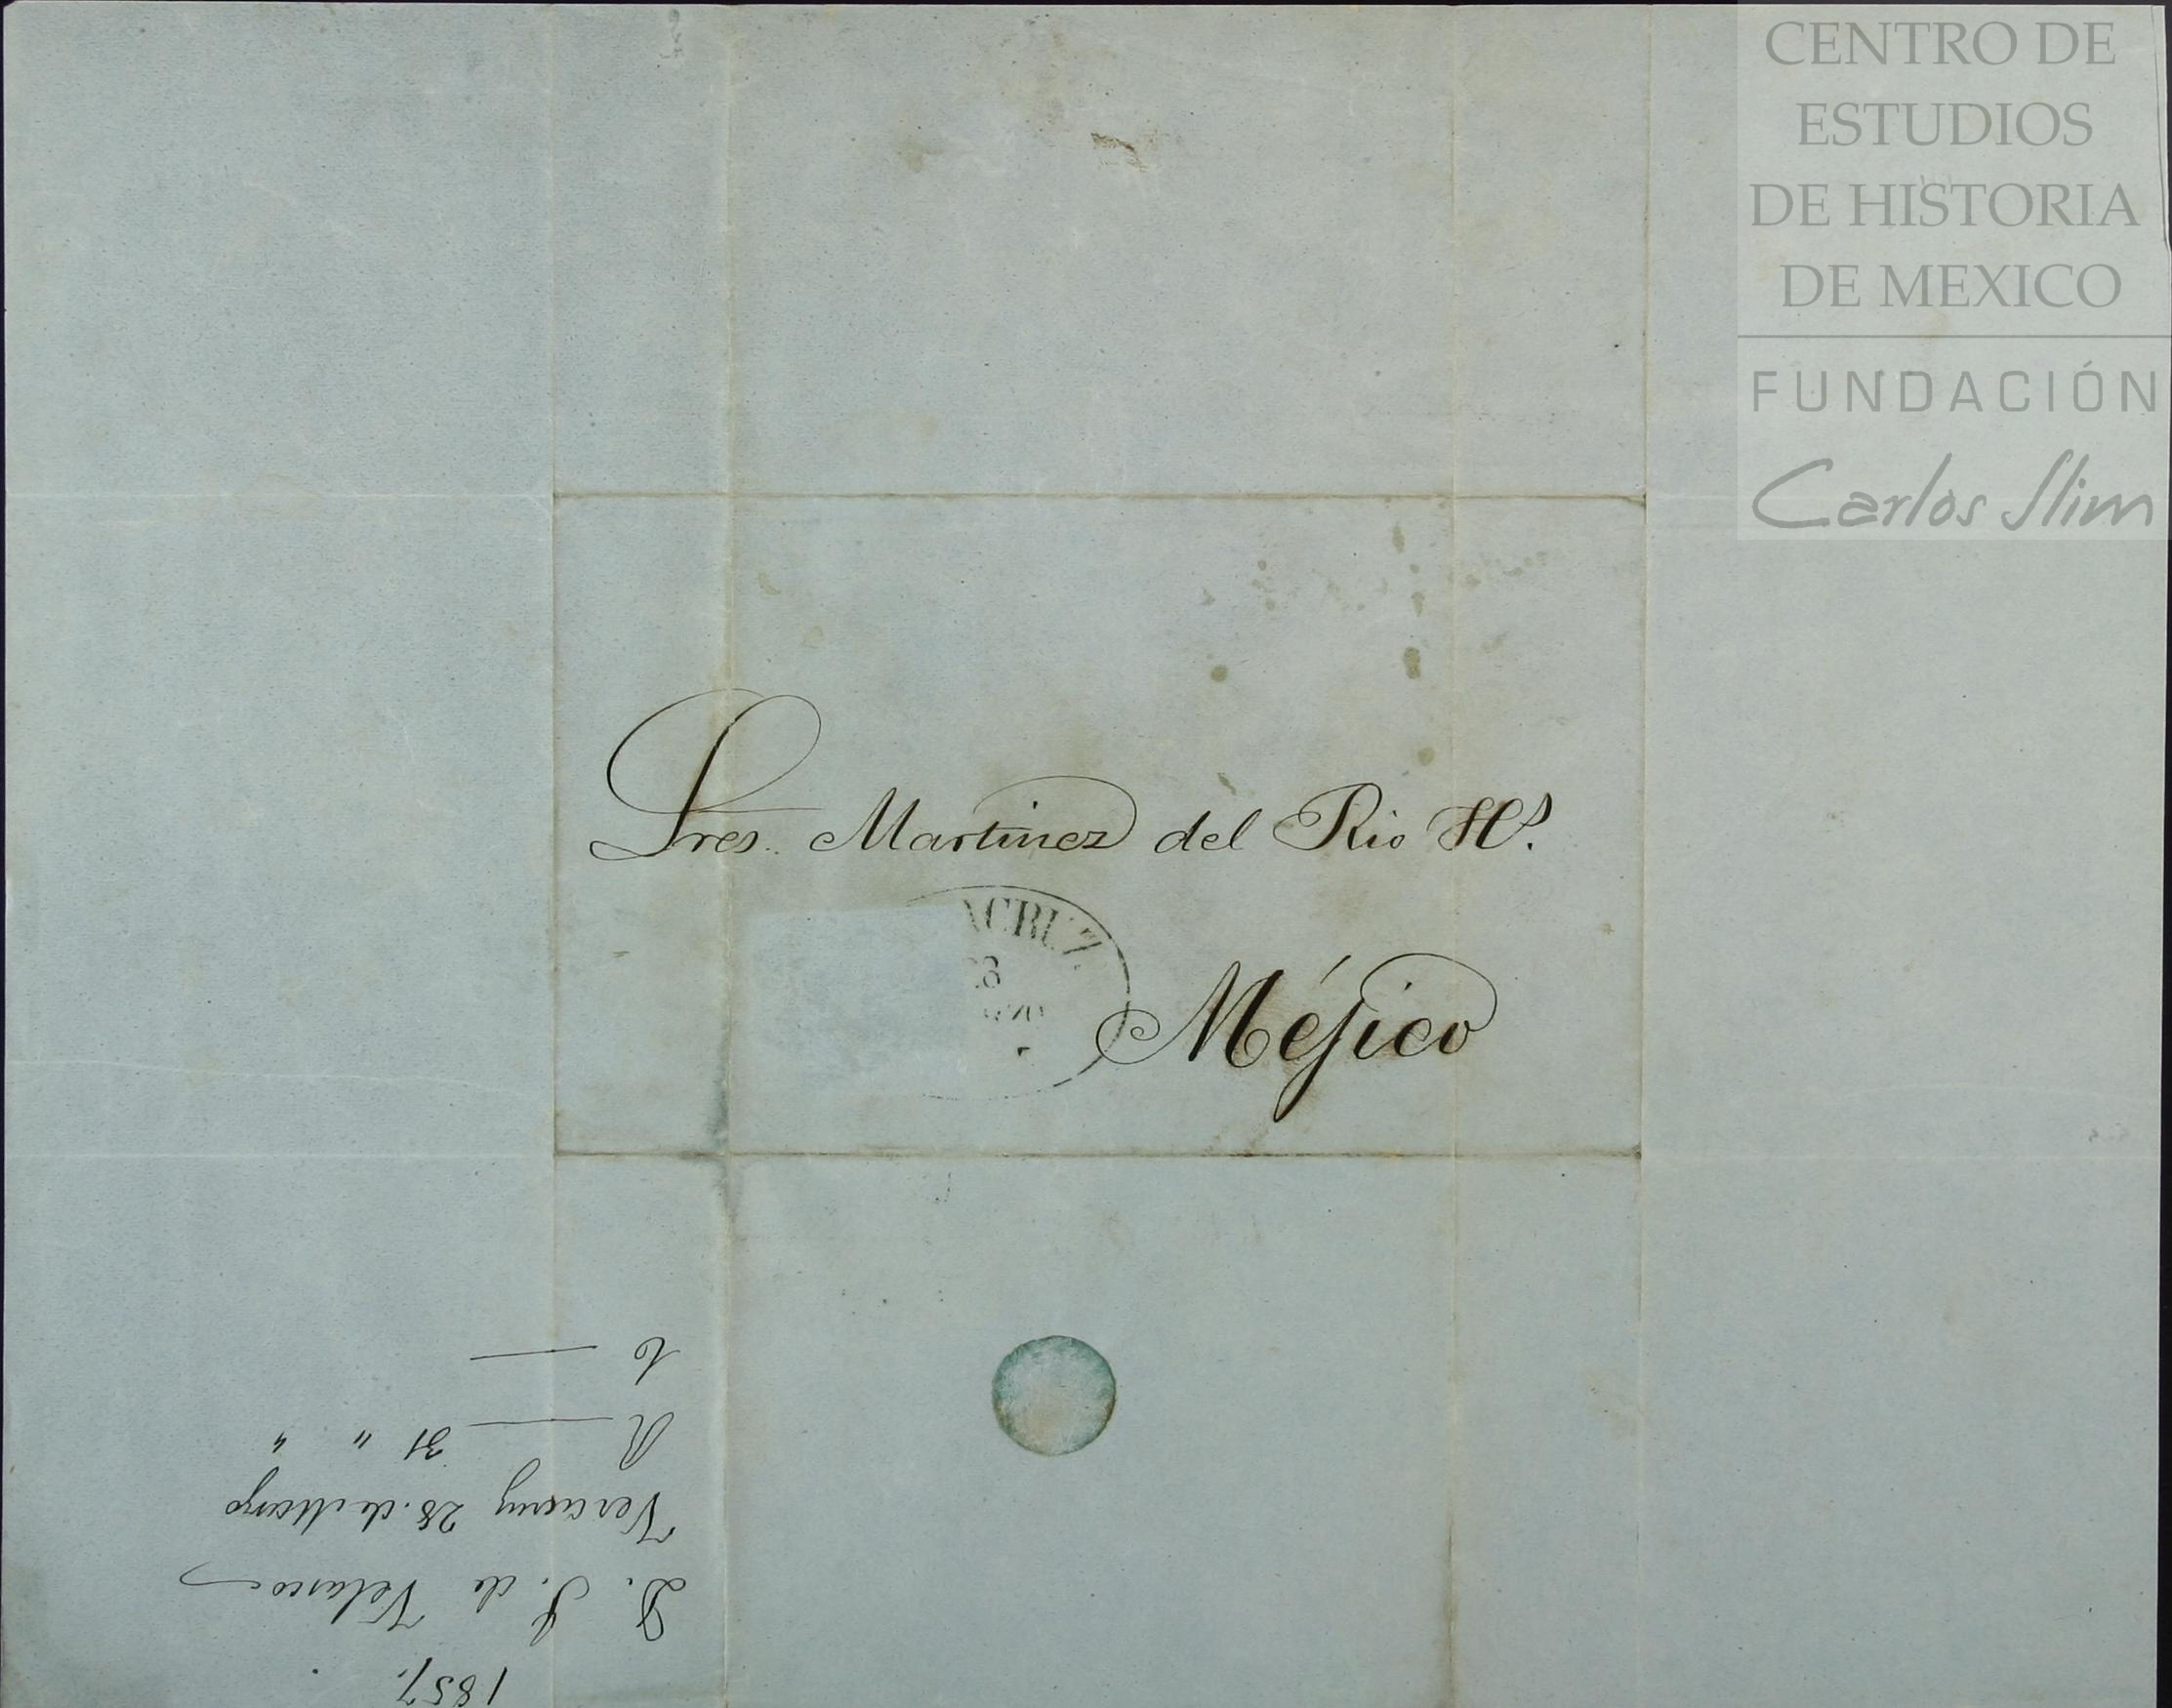 CENTRO DE
ESTUDIOS
DE HISTORIA
DE MEXICO
FUNDACIÓN
Carlos Slim
Sres. Martinez del Rio Hs.
ACRUZ.
Méjico
1857.
D. J. de Velasco
Veracruz 28. de Marzo
R 31 " "
C